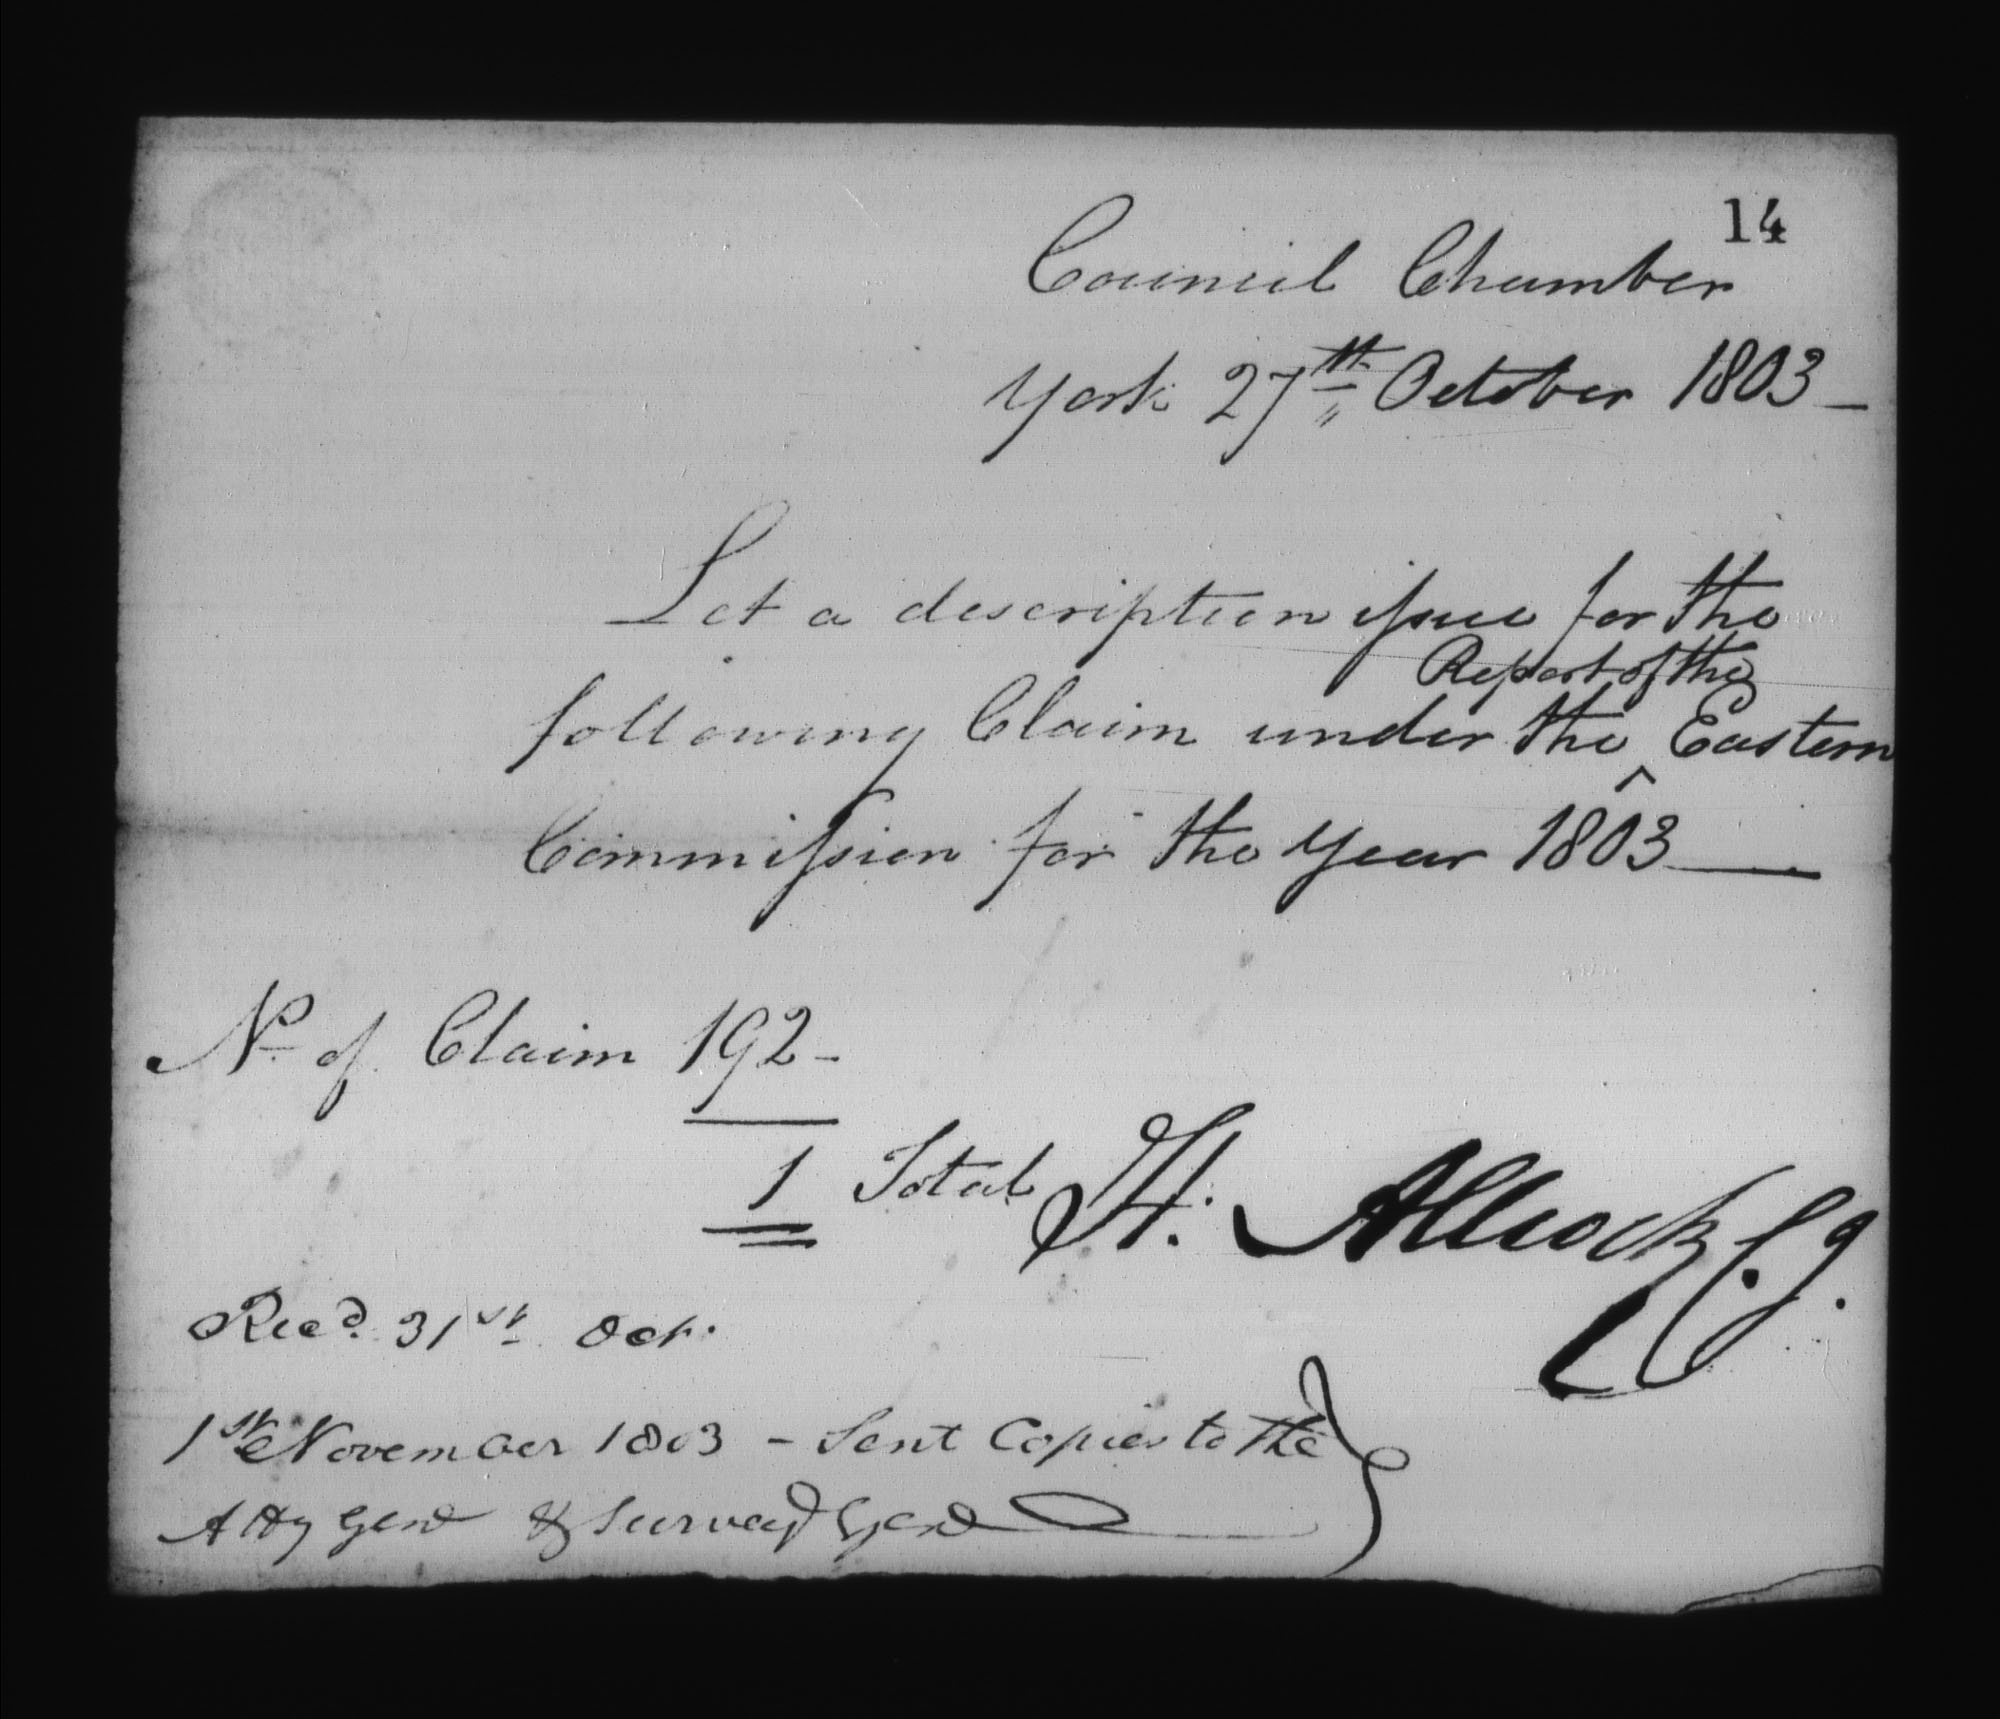 14
Council Chamber
York 27th October 1803 –
Let a description issue for the
Report of the
following Claim under the ^ Eastern
Commission for the Year 1803 —
No of Claim 192 –
1 Total
H. Allcock C.J.
Recd. 31st Oct.
1st November 1803 – Sent Copies to the
Atty Genl & Surveyr Genl